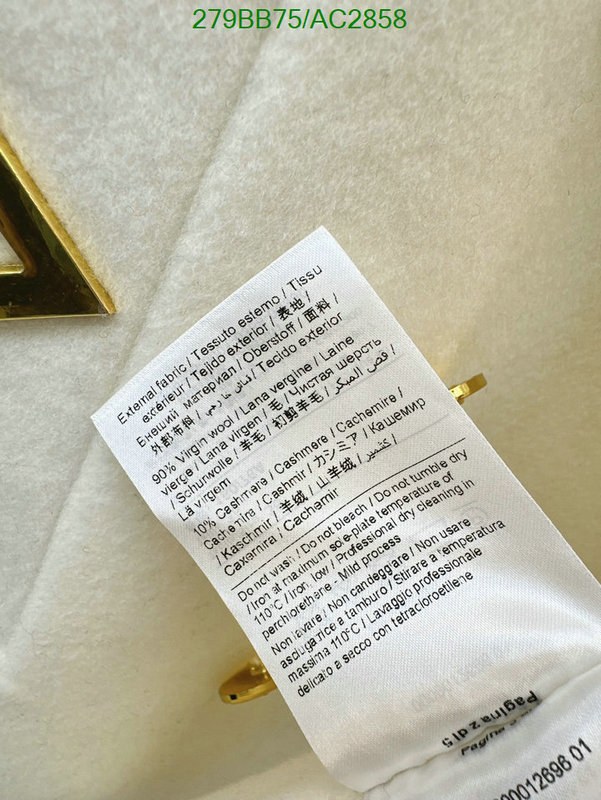 279BB75/AC2858
External fabric / Tessuto esterno / Tissu
extérieur / Tejido exterior / 表地 /
Внешний материал / Oberstoff / 面料 /
外部布料 / / Tecido exterior
90% Virgin wool / Lana vergine / Laine
vierge / Lana virgen / 毛 / Чистая шерсть
/ Schurwolle / 羊毛 / 初剪羊毛 /
Lã virgem
10% Cashmere / Cashmere / Cachemire /
Cachemira / Cashmir / カシミア / Кашемир
/ Kaschmir / 羊绒 / 山羊绒 / كشمير /
Caxemira / Cachemir
Do not wash / Do not bleach / Do not tumble dry
/ Iron at maximum sole-plate temperature of
110°C / Iron, low / Professional dry cleaning in
perchlorethane - Mild process
Non lavare / Non candeggiare / Non usare
asciugatrice a tamburo / Stirare a temperatura
massima 110°C / Lavaggio professionale
delicato a secco con tetracloroetilene
Pagina 2 di 5
00012696 01